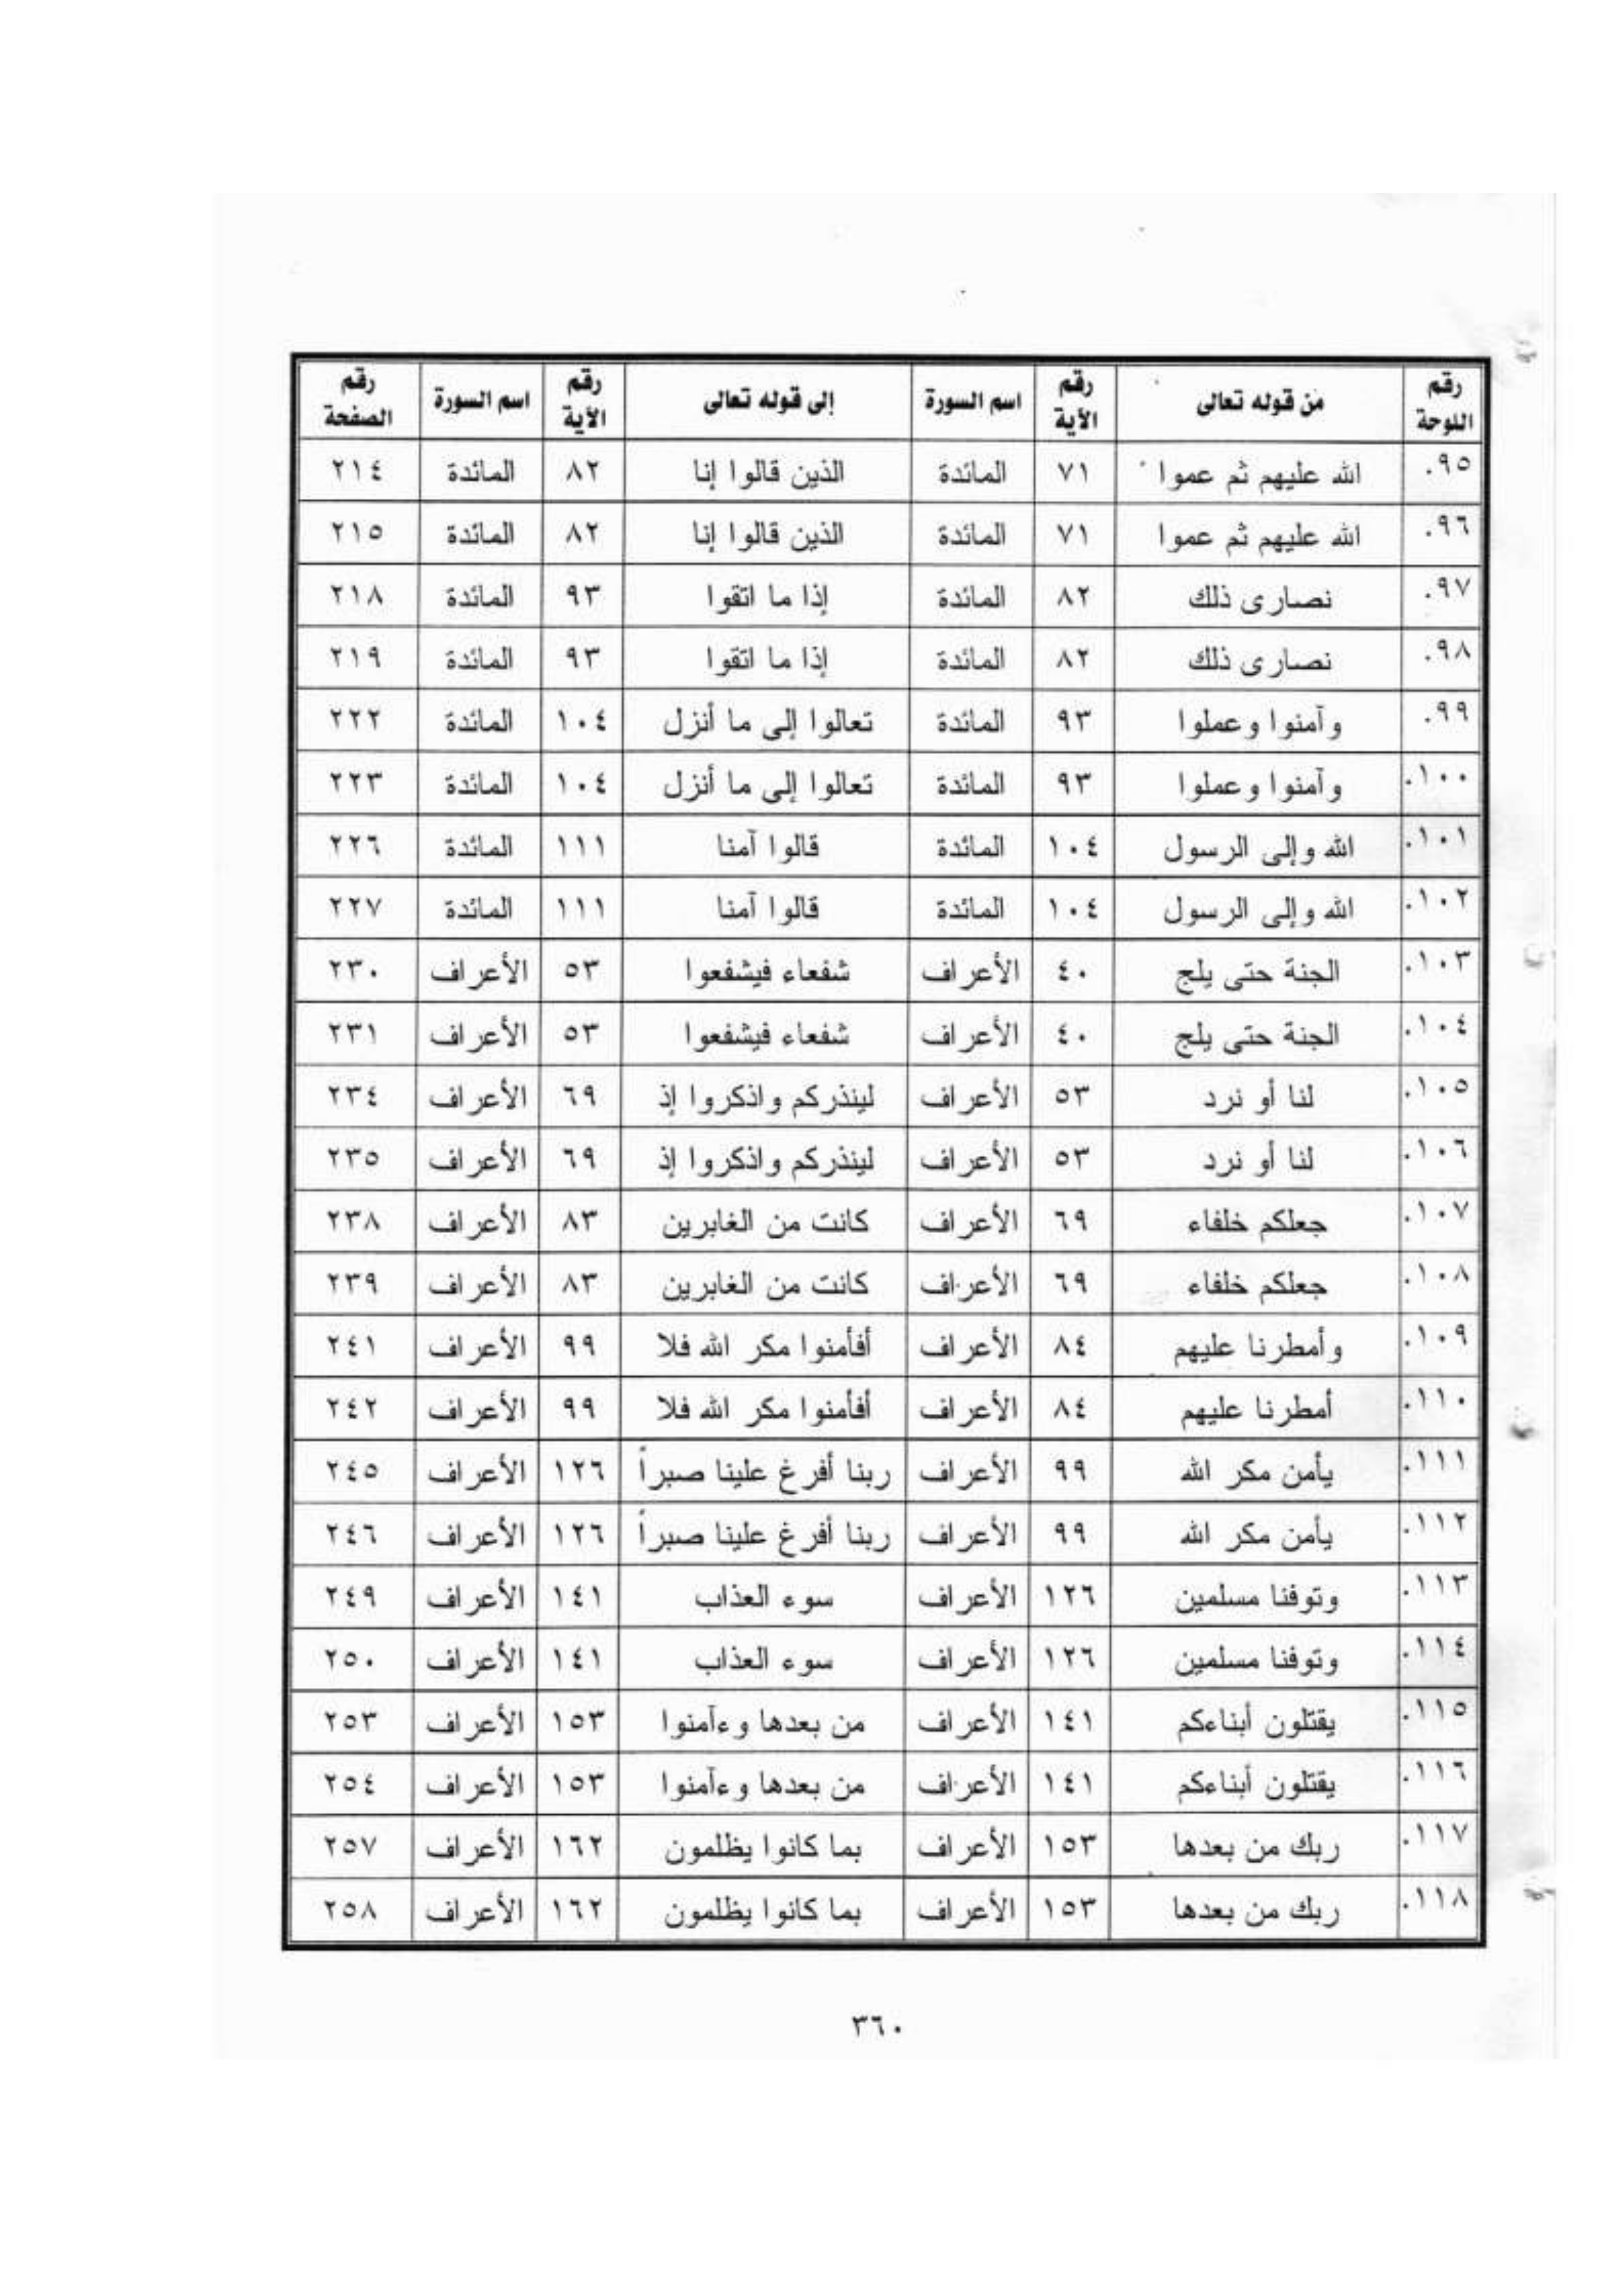 رقم اللوحة من قوله تعالى رقم الآية اسم السورة إلى قوله تعالى رقم الآية اسم السورة رقم الصفحة
٩٥. الله عليهم ثم عموا ٧١ المائدة الذين قالوا إنا ٨٢ المائدة ٢١٤
٩٦. الله عليهم ثم عموا ٧١ المائدة الذين قالوا إنا ٨٢ المائدة ٢١٥
٩٧. نصارى ذلك ٨٢ المائدة إذا ما اتقوا ٩٣ المائدة ٢١٨
٩٨. نصارى ذلك ٨٢ المائدة إذا ما اتقوا ٩٣ المائدة ٢١٩
٩٩. وآمنوا وعملوا ٩٣ المائدة تعالوا إلى ما أنزل ١٠٤ المائدة ٢٢٢
١٠٠. وآمنوا وعملوا ٩٣ المائدة تعالوا إلى ما أنزل ١٠٤ المائدة ٢٢٣
١٠١. الله وإلى الرسول ١٠٤ المائدة قالوا آمنا ١١١ المائدة ٢٢٦
١٠٢. الله وإلى الرسول ١٠٤ المائدة قالوا آمنا ١١١ المائدة ٢٢٧
١٠٣. الجنة حتى يلج ٤٠ الأعراف شفعاء فيشفعوا ٥٣ الأعراف ٢٣٠
١٠٤. الجنة حتى يلج ٤٠ الأعراف شفعاء فيشفعوا ٥٣ الأعراف ٢٣١
١٠٥. لنا أو نرد ٥٣ الأعراف لينذركم واذكروا إذ ٦٩ الأعراف ٢٣٤
١٠٦. لنا أو نرد ٥٣ الأعراف لينذركم واذكروا إذ ٦٩ الأعراف ٢٣٥
١٠٧. جعلكم خلفاء ٦٩ الأعراف كانت من الغابرين ٨٣ الأعراف ٢٣٨
١٠٨. جعلكم خلفاء ٦٩ الأعراف كانت من الغابرين ٨٣ الأعراف ٢٣٩
١٠٩. وأمطرنا عليهم ٨٤ الأعراف أفأمنوا مكر الله فلا ٩٩ الأعراف ٢٤١
١١٠. أمطرنا عليهم ٨٤ الأعراف أفأمنوا مكر الله فلا ٩٩ الأعراف ٢٤٢
١١١. يأمن مكر الله ٩٩ الأعراف ربنا أفرغ علينا صبراً ١٢٦ الأعراف ٢٤٥
١١٢. يأمن مكر الله ٩٩ الأعراف ربنا أفرغ علينا صبراً ١٢٦ الأعراف ٢٤٦
١١٣. وتوفنا مسلمين ١٢٦ الأعراف سوء العذاب ١٤١ الأعراف ٢٤٩
١١٤. وتوفنا مسلمين ١٢٦ الأعراف سوء العذاب ١٤١ الأعراف ٢٥٠
١١٥. يقتلون أبناءكم ١٤١ الأعراف من بعدها وءآمنوا ١٥٣ الأعراف ٢٥٣
١١٦. يقتلون أبناءكم ١٤١ الأعراف من بعدها وءآمنوا ١٥٣ الأعراف ٢٥٤
١١٧. ربك من بعدها ١٥٣ الأعراف بما كانوا يظلمون ١٦٢ الأعراف ٢٥٧
١١٨. ربك من بعدها ١٥٣ الأعراف بما كانوا يظلمون ١٦٢ الأعراف ٢٥٨
٣٦٠